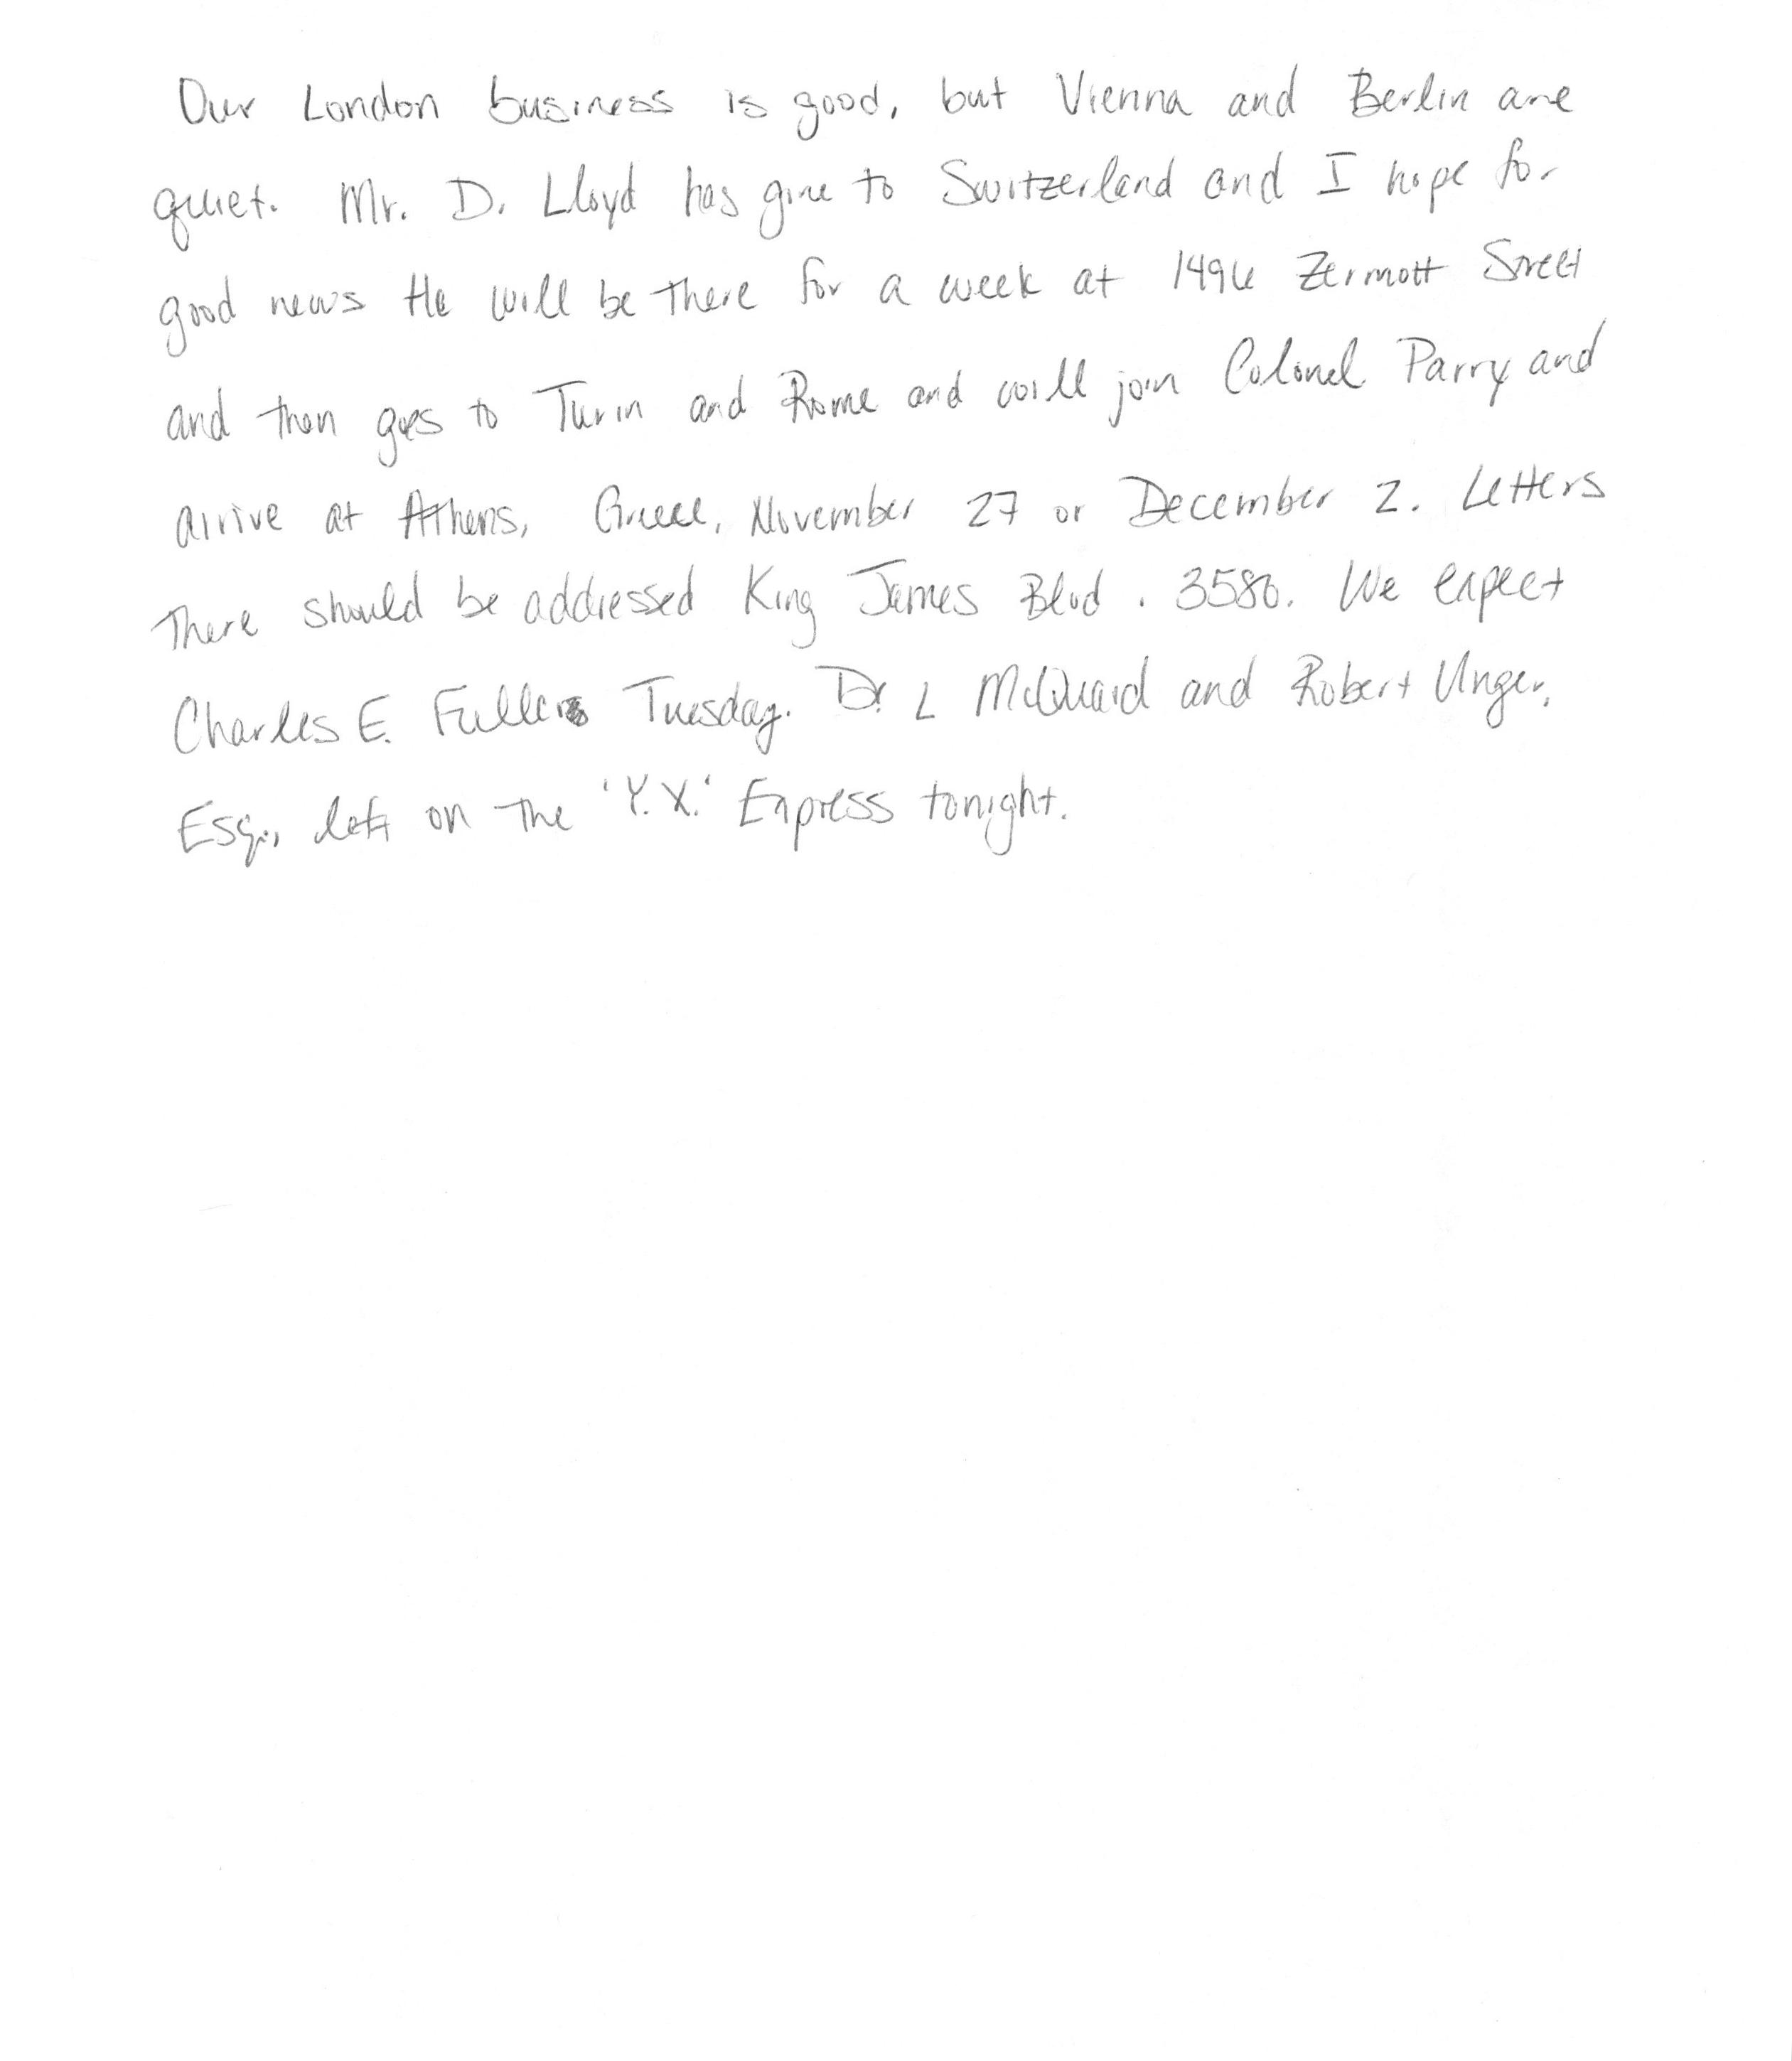 Our London business is good, but Vienna and Berlin are
quiet. Mr. D. Lloyd has gone to Switzerland and I hope for
good news He will be there for a week at 1496 Zermott Street
and then goes to Turin and Rome and will join Colonel Parry and
arrive at Athens, Greece, November 27 or December 2. Letters
There should be addressed King James Blvd. 3580. We expect
Charles E. Fuller Tuesday. Dr. L McQuaid and Robert Unger,
Esq., left on the 'Y.X.' Express tonight.